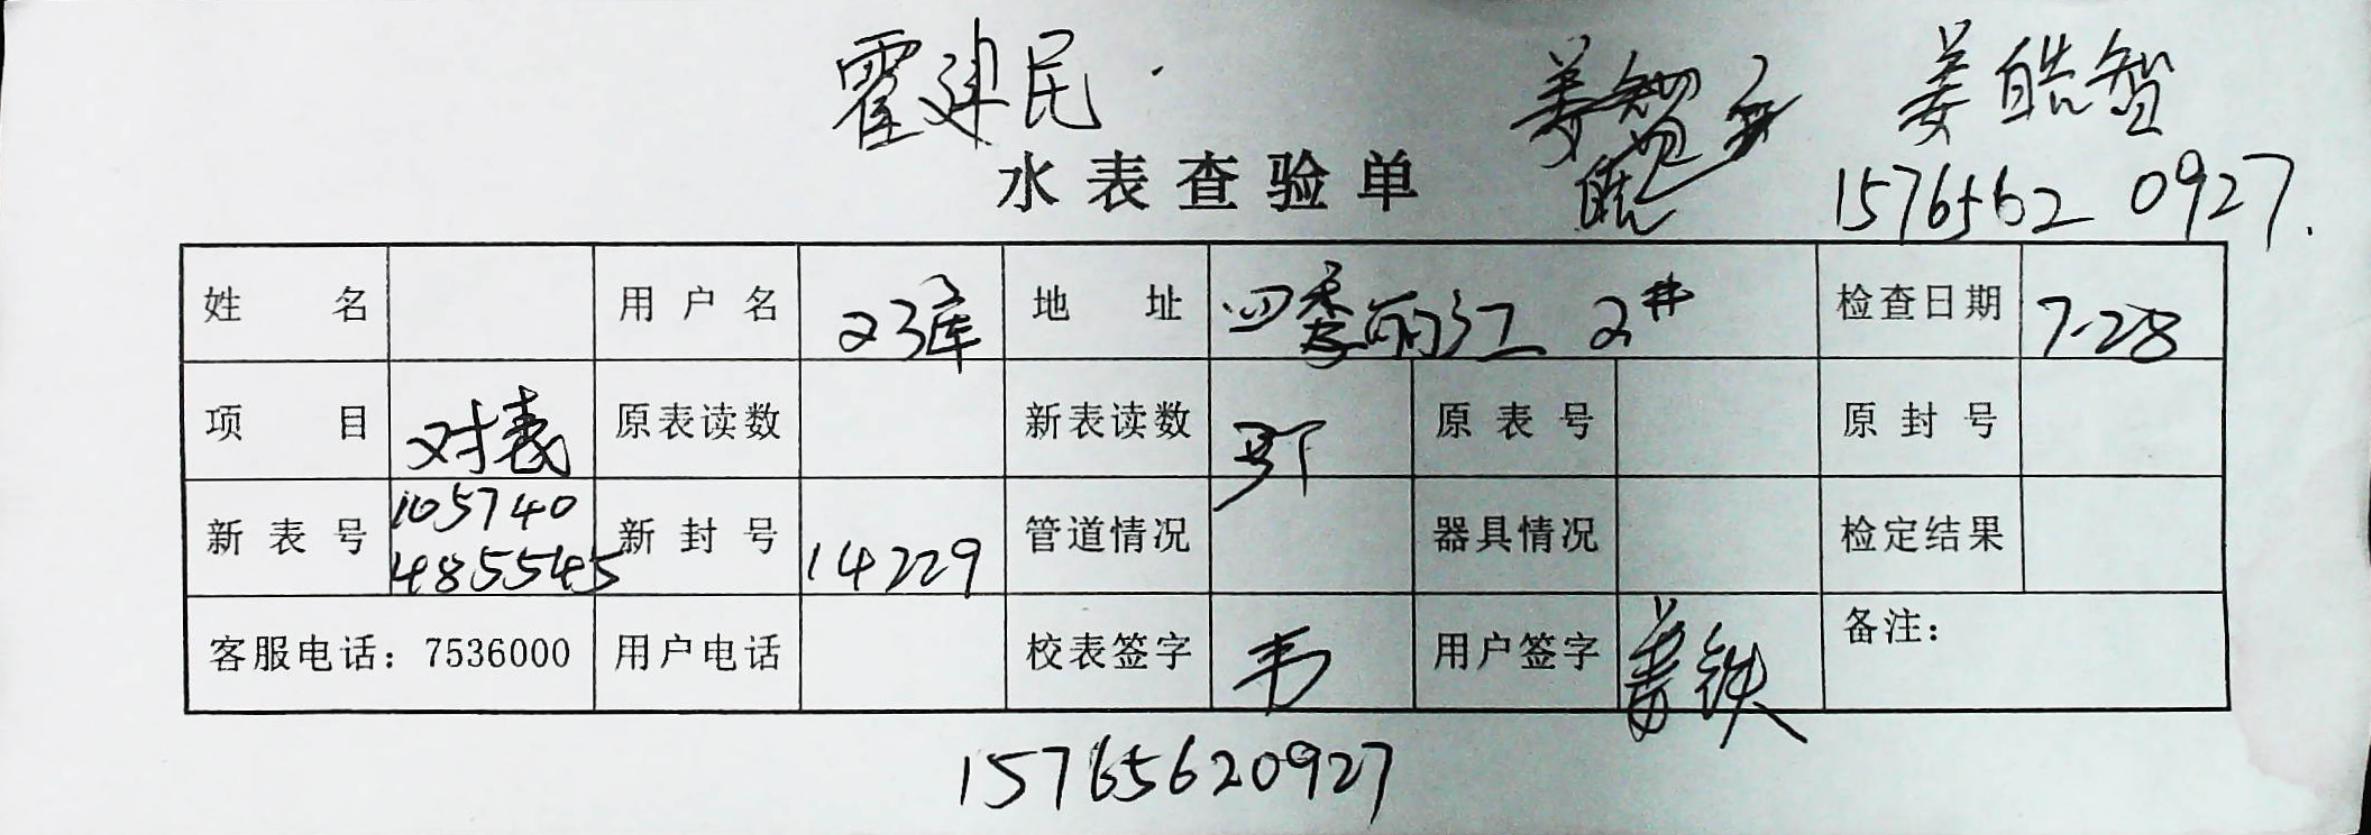 霍建民 姜皓智
水表查验单 15765620927.
姓名 用户名 23库 地址 四季丽江 2# 检查日期 7-28
项目 对表 原表读数 新表读数 原表号 原封号
新表号 105740 485545 新封号 14229 管道情况 器具情况 检定结果
客服电话：7536000 用户电话 校表签字 韦 用户签字 姜铁 备注：
15765620927